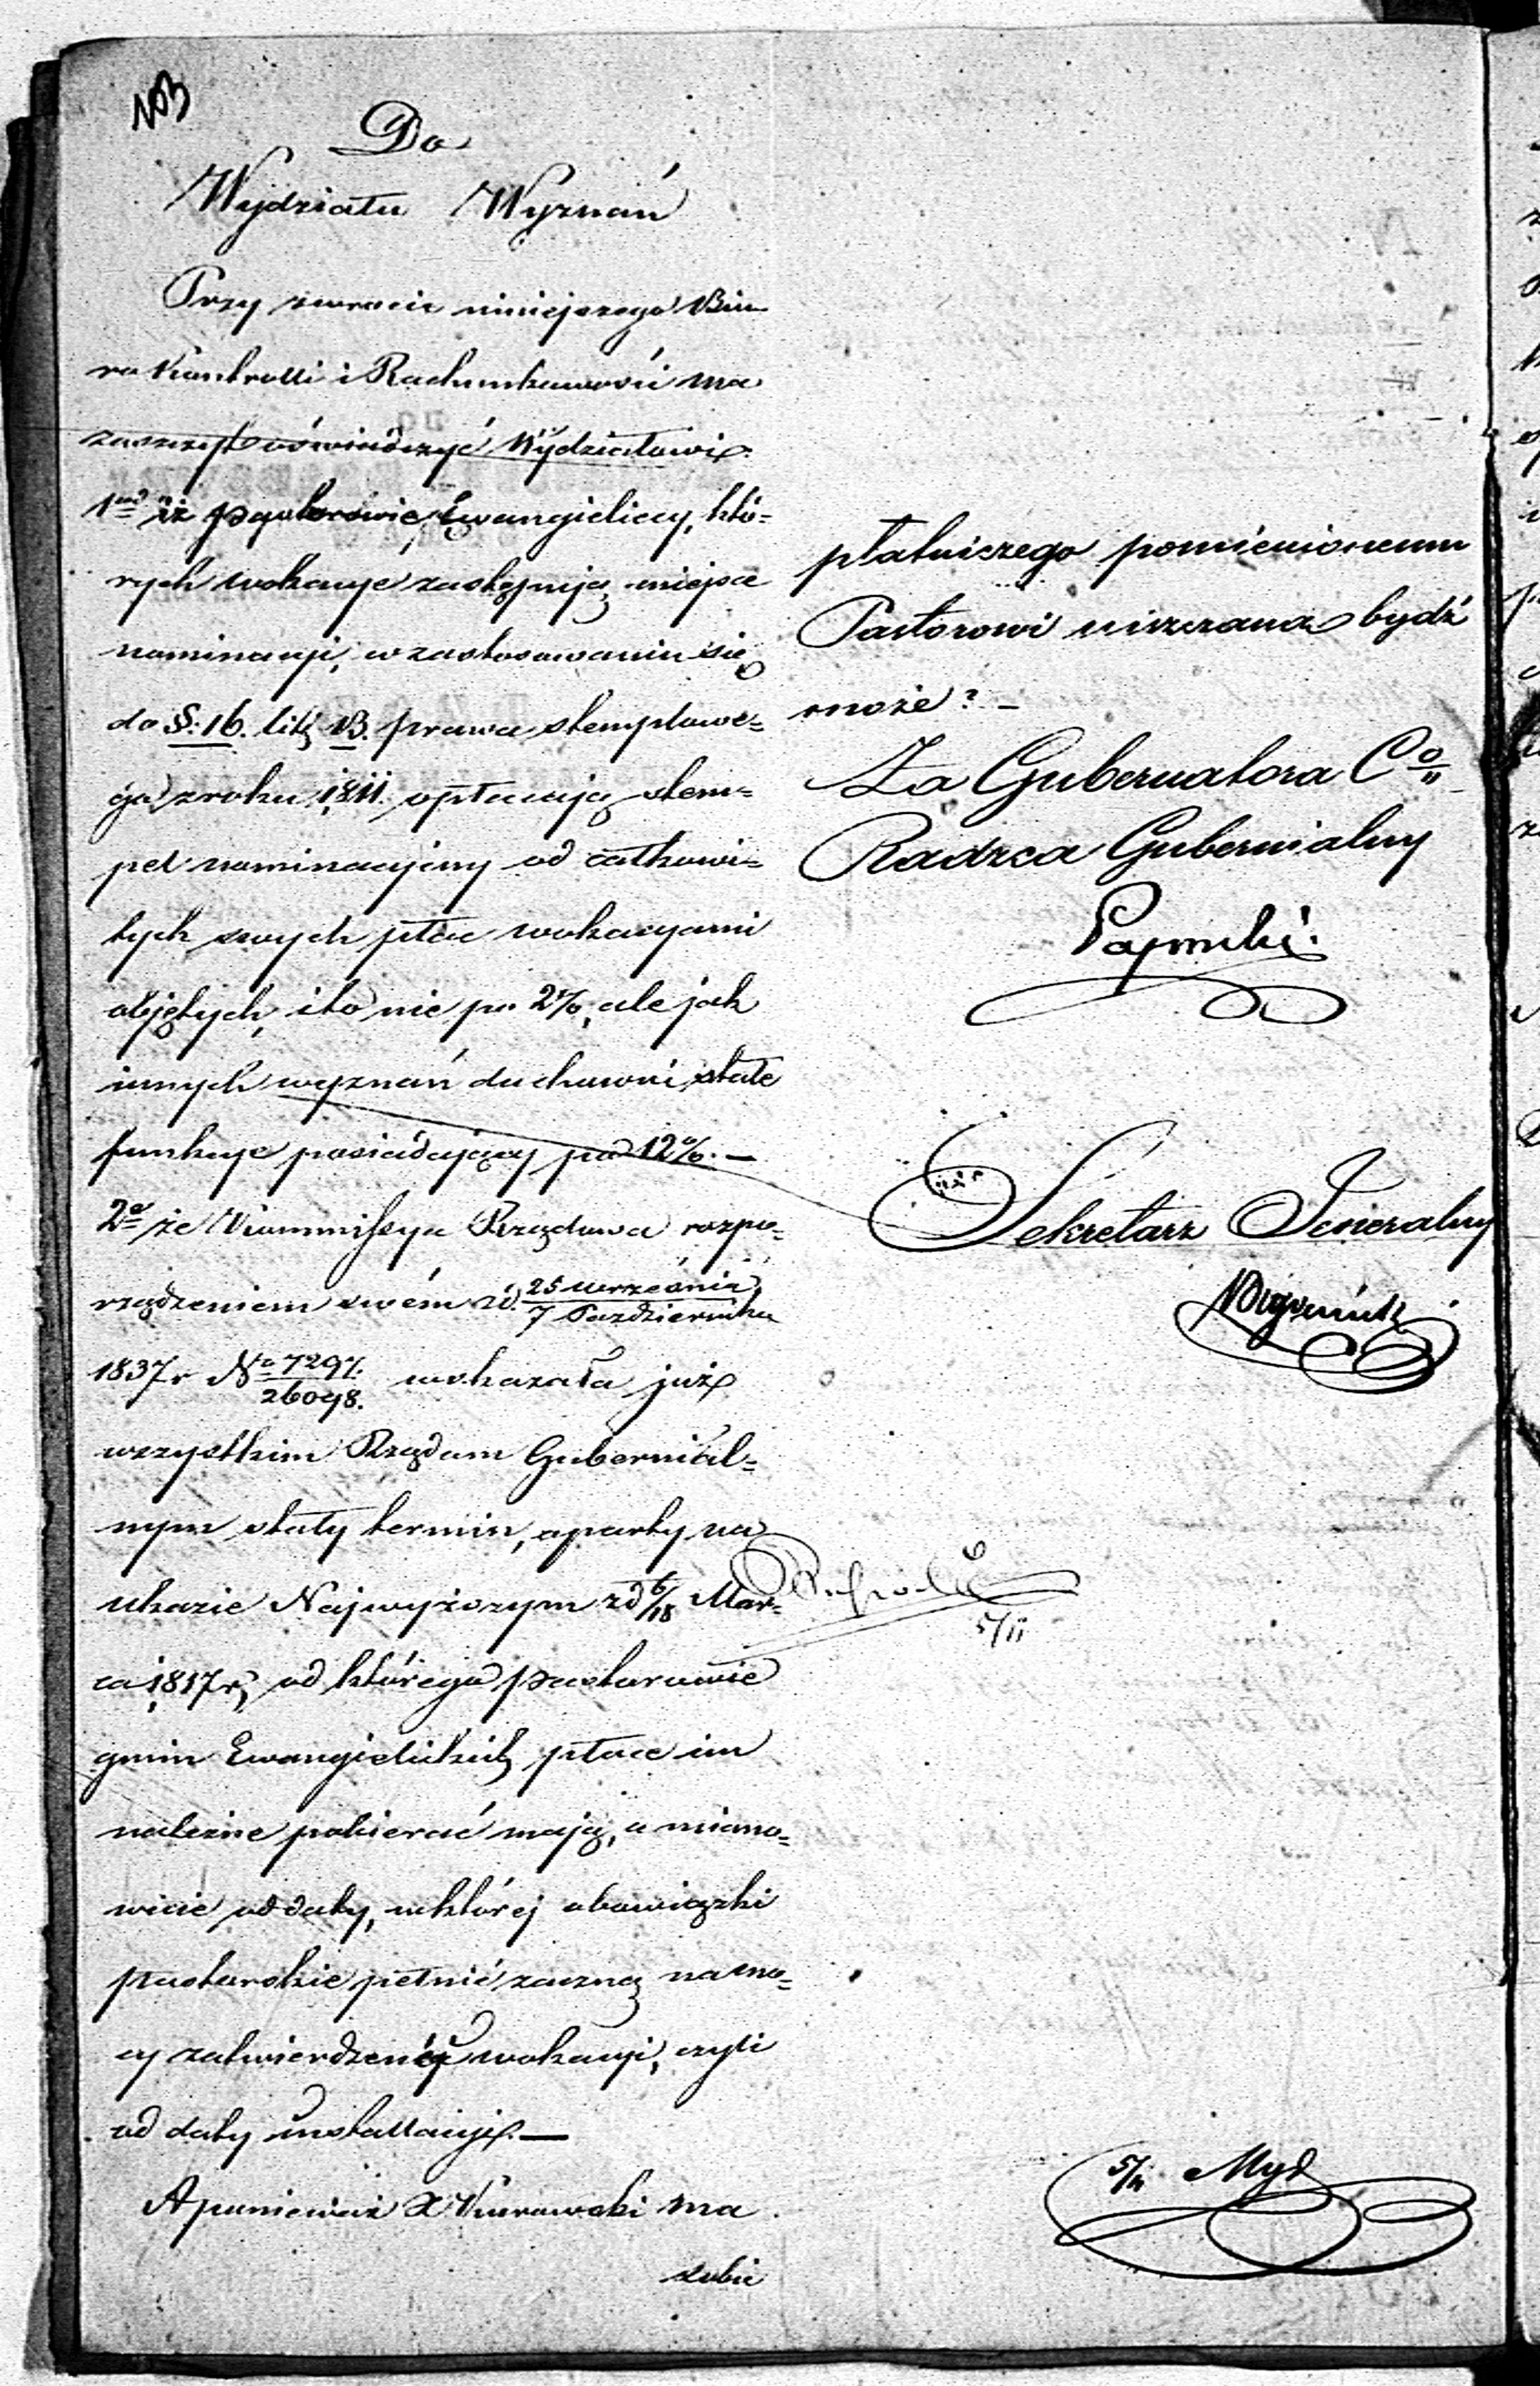 103
Do
Wydziału Wyznań
Przy zwrocie niniejszego Biu-
ro Kontrolli i Rachunkowości ma
zaszczyt oświadczyć Wydziałowi
1mo iż pastorowie Ewangieliccy, któ=
rych wokacye zastępują miejsce
nominacji, w zastosowaniu się
do §. 16. lit. B. prawa stemplowe=
go z roku 1811. opłacają stem=
pel nominacyjny od całkowi=
tych swych płac wokacyami
objętych, i to nie po 2%, ale jak
innych wyznań duchowni stałe
funkcye posiadający po 12%. —
2o że Kommissya Rządowa rozpo=
rządzeniem swém z d. 25 Września / 7 Października
1837 r No 7297. / 26098. wskazała już
wszystkim Rządom Gubernial=
nym stały termin, oparty na
ukazie Najwyższym z d 6/18 Mar=
ca 1817 r, od którego pastorowie
gmin Ewangielickich płace im
należne pobierać mają, a miano=
wicie od daty, w której obowiązki
pastorskie pełnić zaczną na mo=
cy zatwierdzonéj wokacyi, czyli
od daty installacyi. —
A ponieważ X Kurowski ma
sobie
płatniczego pomienionemu
Pastorowi uiszczana bydź
może? —
Za Gubernatora Co
Radzca Gubernialny
Sekretarz Jeneralny
5/11
5/11 Myd